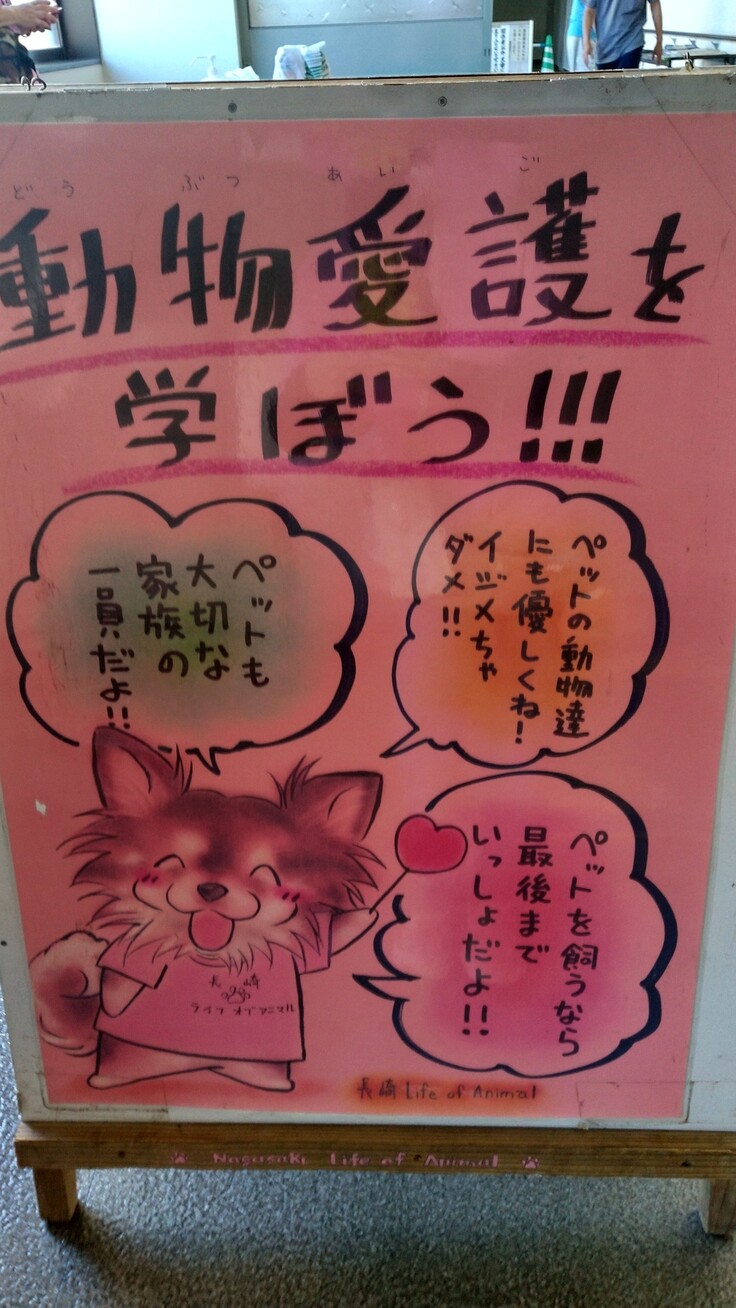 どう ぶつ あい ご
動物愛護を
学ぼう!!!
ペットの動物達
にも優しくね!
イジメちゃ
ダメ!!
ペットも
大切な
家族の
一員だよ!!
ペットを飼うなら
最後まで
いっしょだよ!!
長崎
ライフ オブ アニマル
長崎 Life of Animal
Nagasaki Life of Animal